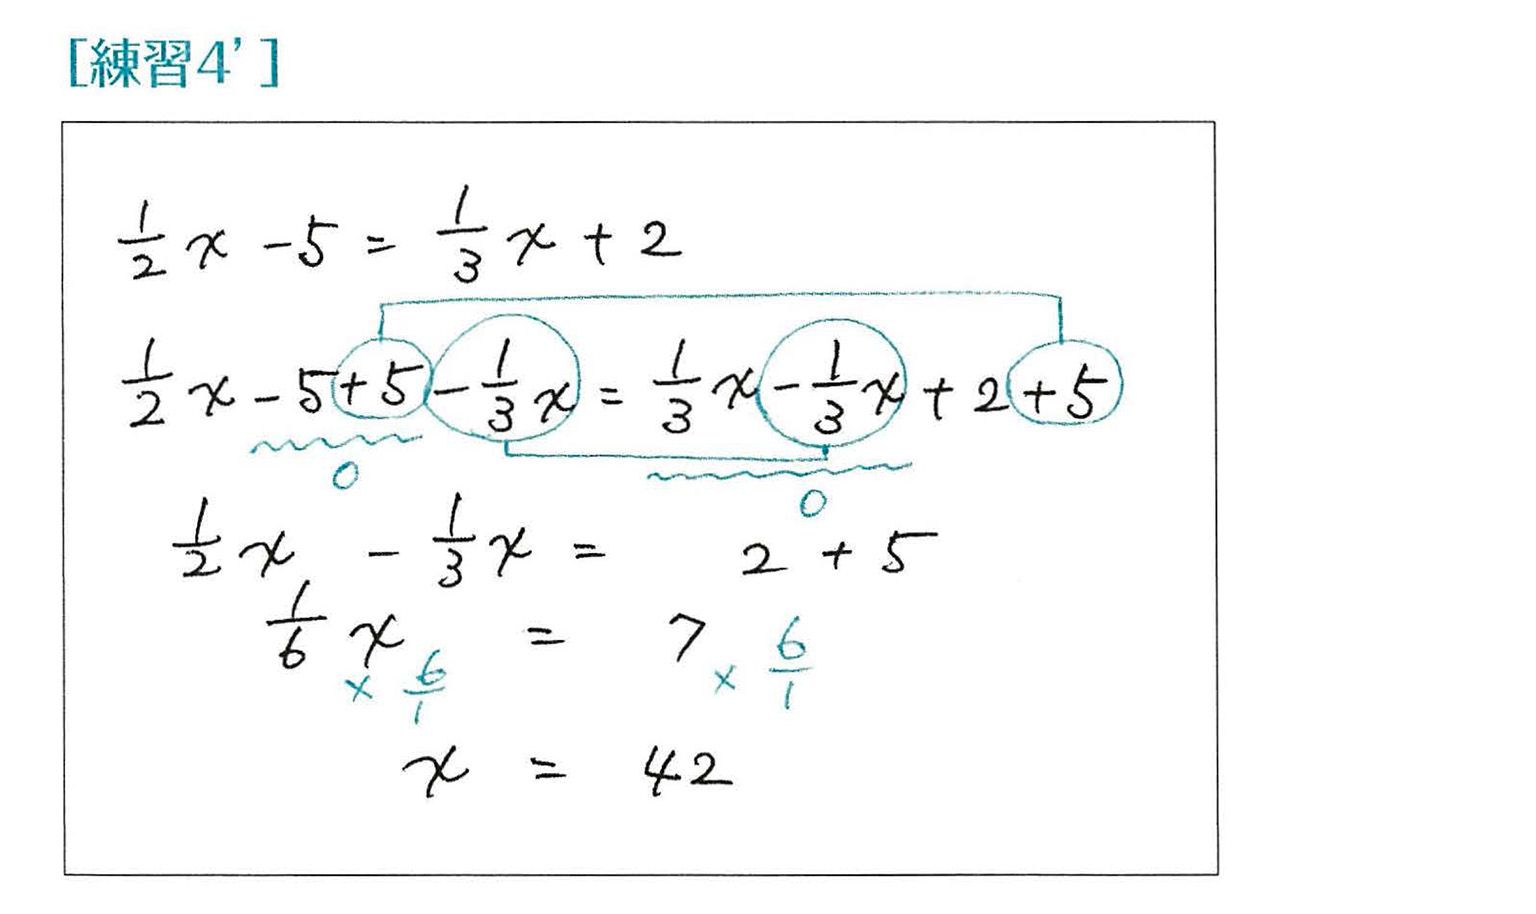 [練習4']
1/2 x - 5 = 1/3 x + 2
1/2 x - 5 + 5 - 1/3 x = 1/3 x - 1/3 x + 2 + 5
0 0
1/2 x - 1/3 x = 2 + 5
1/6 x = 7
× 6/1 × 6/1
x = 42